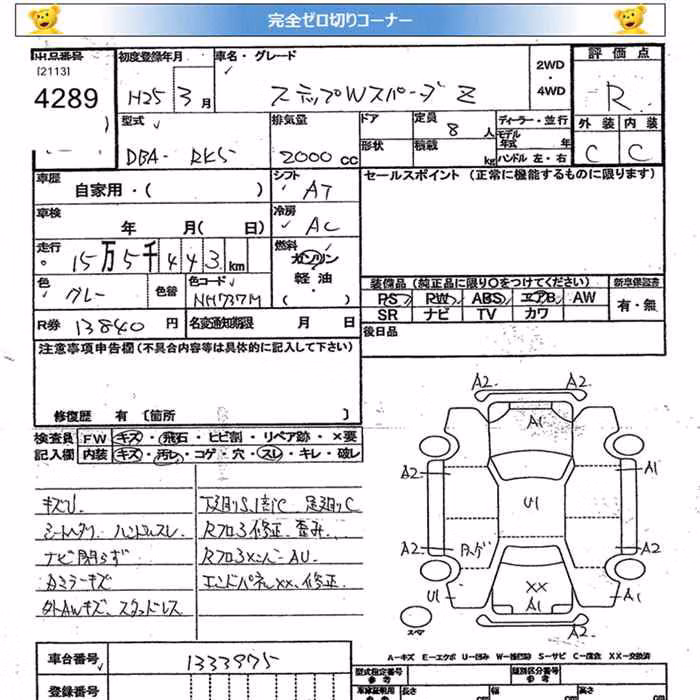 完全ゼロ切りコーナー
出品番号
[2113]
4289
初度登録年月
H25 3月
車名・グレード
ステップWスパーダ Z
2WD
・
4WD
評価点
R
外装 内装
C C
型式
DBA- RK5
排気量
2000 cc
ドア
形状
定員
8 人
積載
kg
ディーラー・並行
モデル
年式 年
ハンドル 左・右
車歴
自家用・( )
シフト
AT
セールスポイント (正常に機能するものに限ります)
車検
年 月( 日)
冷房
AC
走行
15万5千443 km
燃料
ガソリン
軽油
( )
色
グレー
色替
色コード
NH737M
装備品 (純正品に限り○をつけてください)
新車保証書
PS PW ABS エアB AW
SR ナビ TV カワ
有・無
R券 13840 円
名変通知期限 月 日
後日品
注意事項申告欄(不具合内容等は具体的に記入して下さい)
修復歴 有 [箇所 ]
検査員
記入欄
FW キズ・飛石・ヒビ割・リペア跡・×要
内装 キズ・汚レ・コゲ・穴・スレ・キレ・破レ
キズU
シートヘタリ ハンドルスレ
ナビ開らず
カミラーキズ
外AWキズ、スタッドレス
下廻りS、錆C 足廻りC
Rフロ3修正、歪み
Rフロ3メンバーAU
エンドパネXX、修正
A2 A2
A1
A2 A1
U1
A2 A2
XX
U1 A1 A1
A2
スペア
A-キズ E-エクボ U-凹み W-補修跡 S-サビ C-腐食 XX-交換済
車台番号
1333975
登録番号
型式指定番号
参考
類別区分番号
参考
長さ cm
幅 cm
高さ cm